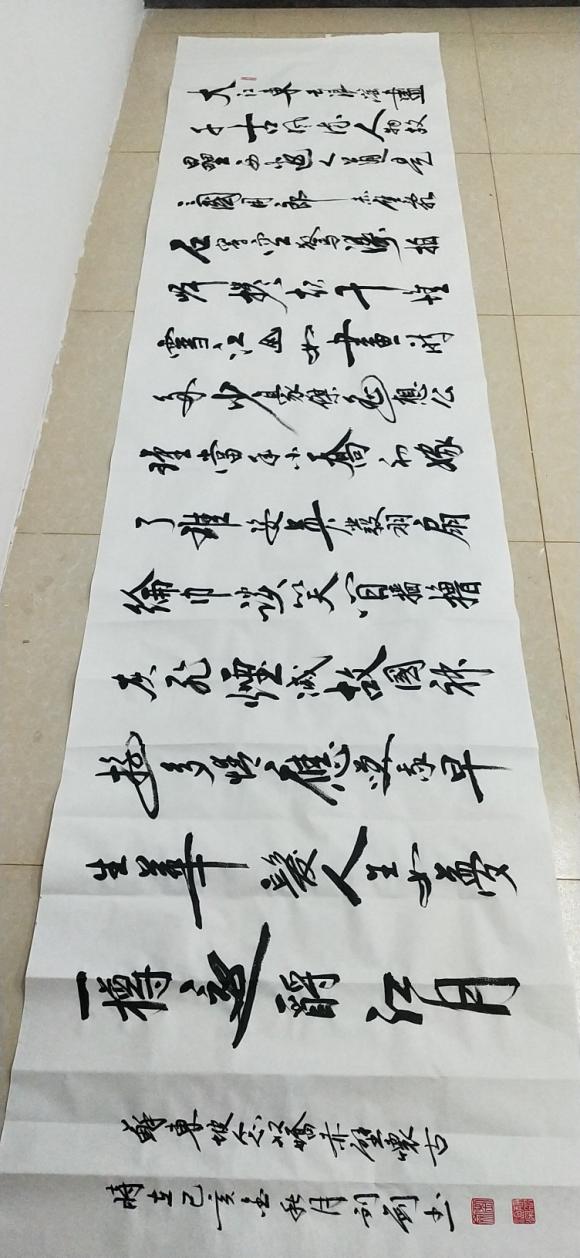 大江東去浪淘盡
千古風流人物故
壘西邊人道是
三國周郎赤壁亂
石穿空驚濤拍
岸捲起千堆
雪江山如畫一時
多少豪傑遥想公
瑾當年小喬初嫁
了雄姿英發羽扇
綸巾談笑間檣櫓
灰飛煙滅故國神
遊多情應笑我早
生華髮人生如夢
一樽還酹江月
蘇東坡念奴嬌赤壁懷古
時在己亥金秋月